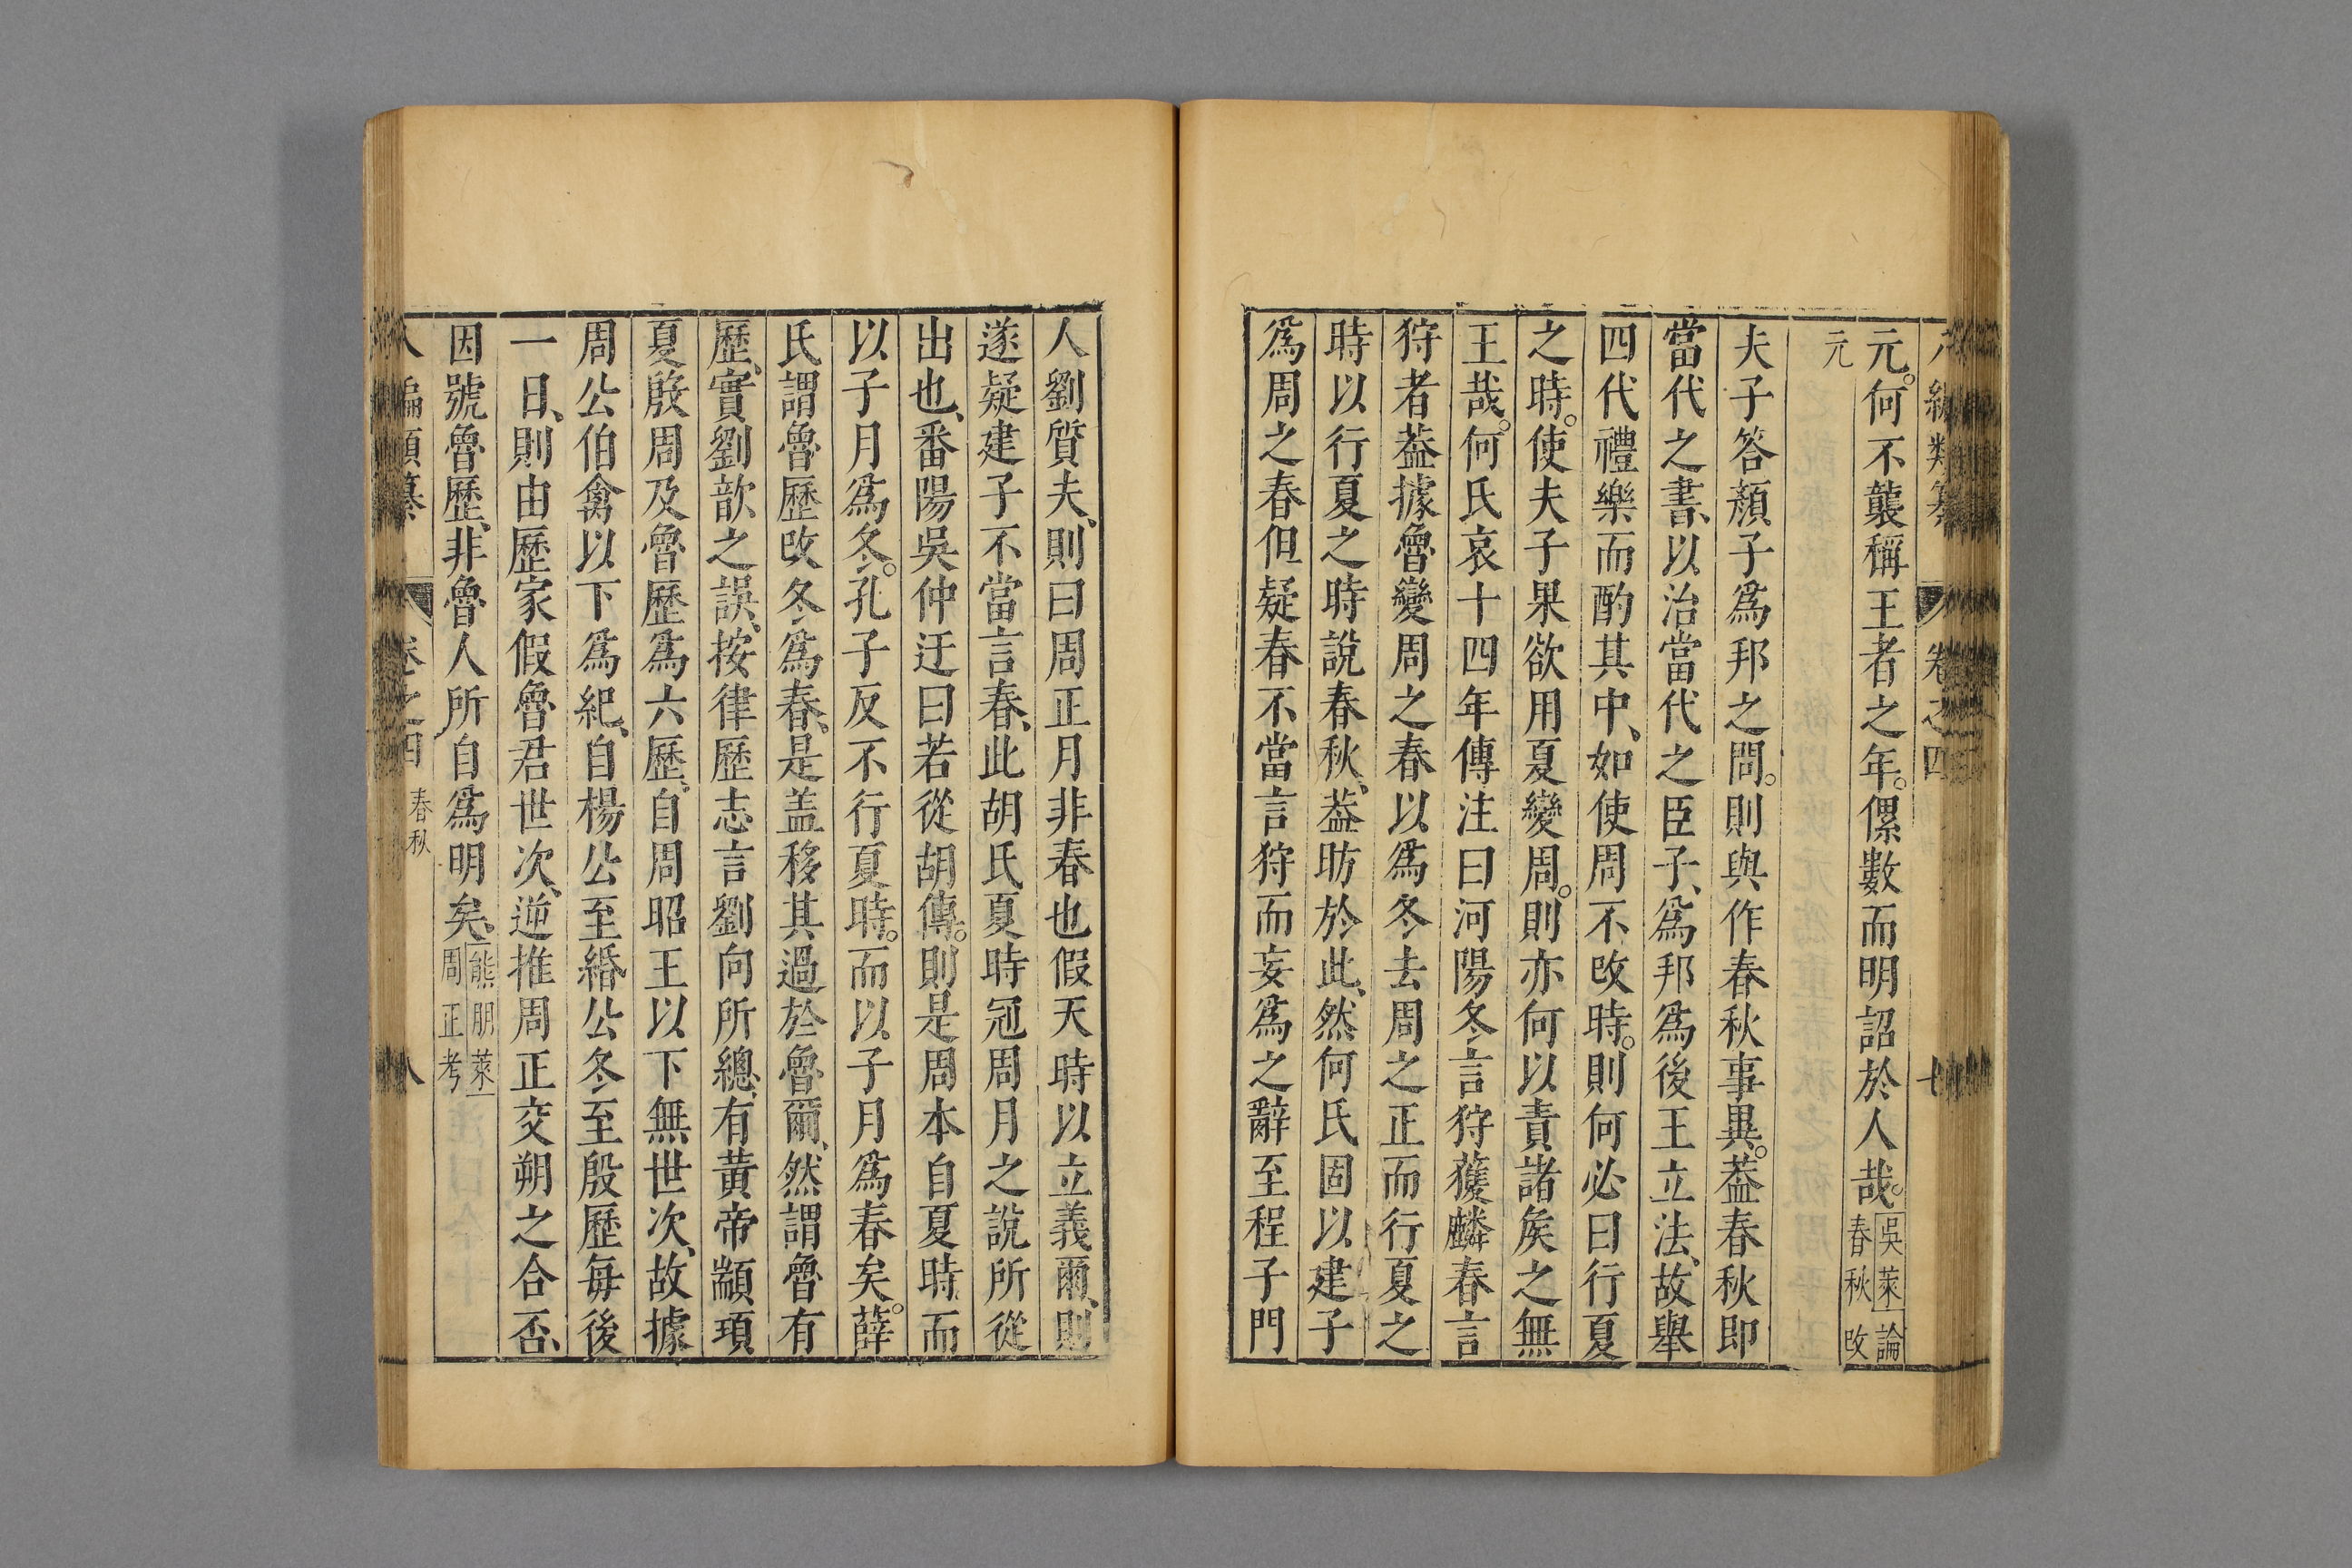 八編類纂 卷之四 七
元。何不襲稱王者之年。傫數而明詔於人哉。吳萊論春秋改
元
夫子答顏子爲邦之問。則與作春秋事異。葢春秋即
當代之書、以治當代之臣子、爲邦爲後王立法、故舉
四代禮樂而酌其中、如使周不改時。則何必曰行夏
之時。使夫子果欲用夏變周。則亦何以責諸矦之無
王哉。何氏哀十四年傳注曰河陽冬言狩獲麟春言
狩者葢據魯變周之春以爲冬去周之正而行夏之
時以行夏之時說春秋、葢昉於此、然何氏固以建子
爲周之春但疑春不當言狩而妄爲之辭至程子門
人劉質夫、則曰周正月非春也假天時以立義爾、則
遂疑建子不當言春、此胡氏夏時冠周月之說所從
出也、番陽吳仲迂曰若從胡傳。則是周本自夏時而
以子月爲冬。孔子反不行夏時。而以子月爲春矣。薛
氏謂魯歷改冬爲春、是盖移其過於魯爾、然謂魯有
歷、實劉歆之誤、按律歷志言劉向所總、有黃帝顓頊
夏殷周及魯歷爲六歷、自周昭王以下無世次、故據
周公伯禽以下爲紀、自楊公至緡公冬至殷歷每後
一日、則由歷家假魯君世次、逆推周正交朔之合否、
因號魯歷、非魯人所自爲明矣。熊朋萊周正考
八編類纂 卷之四 春秋 八